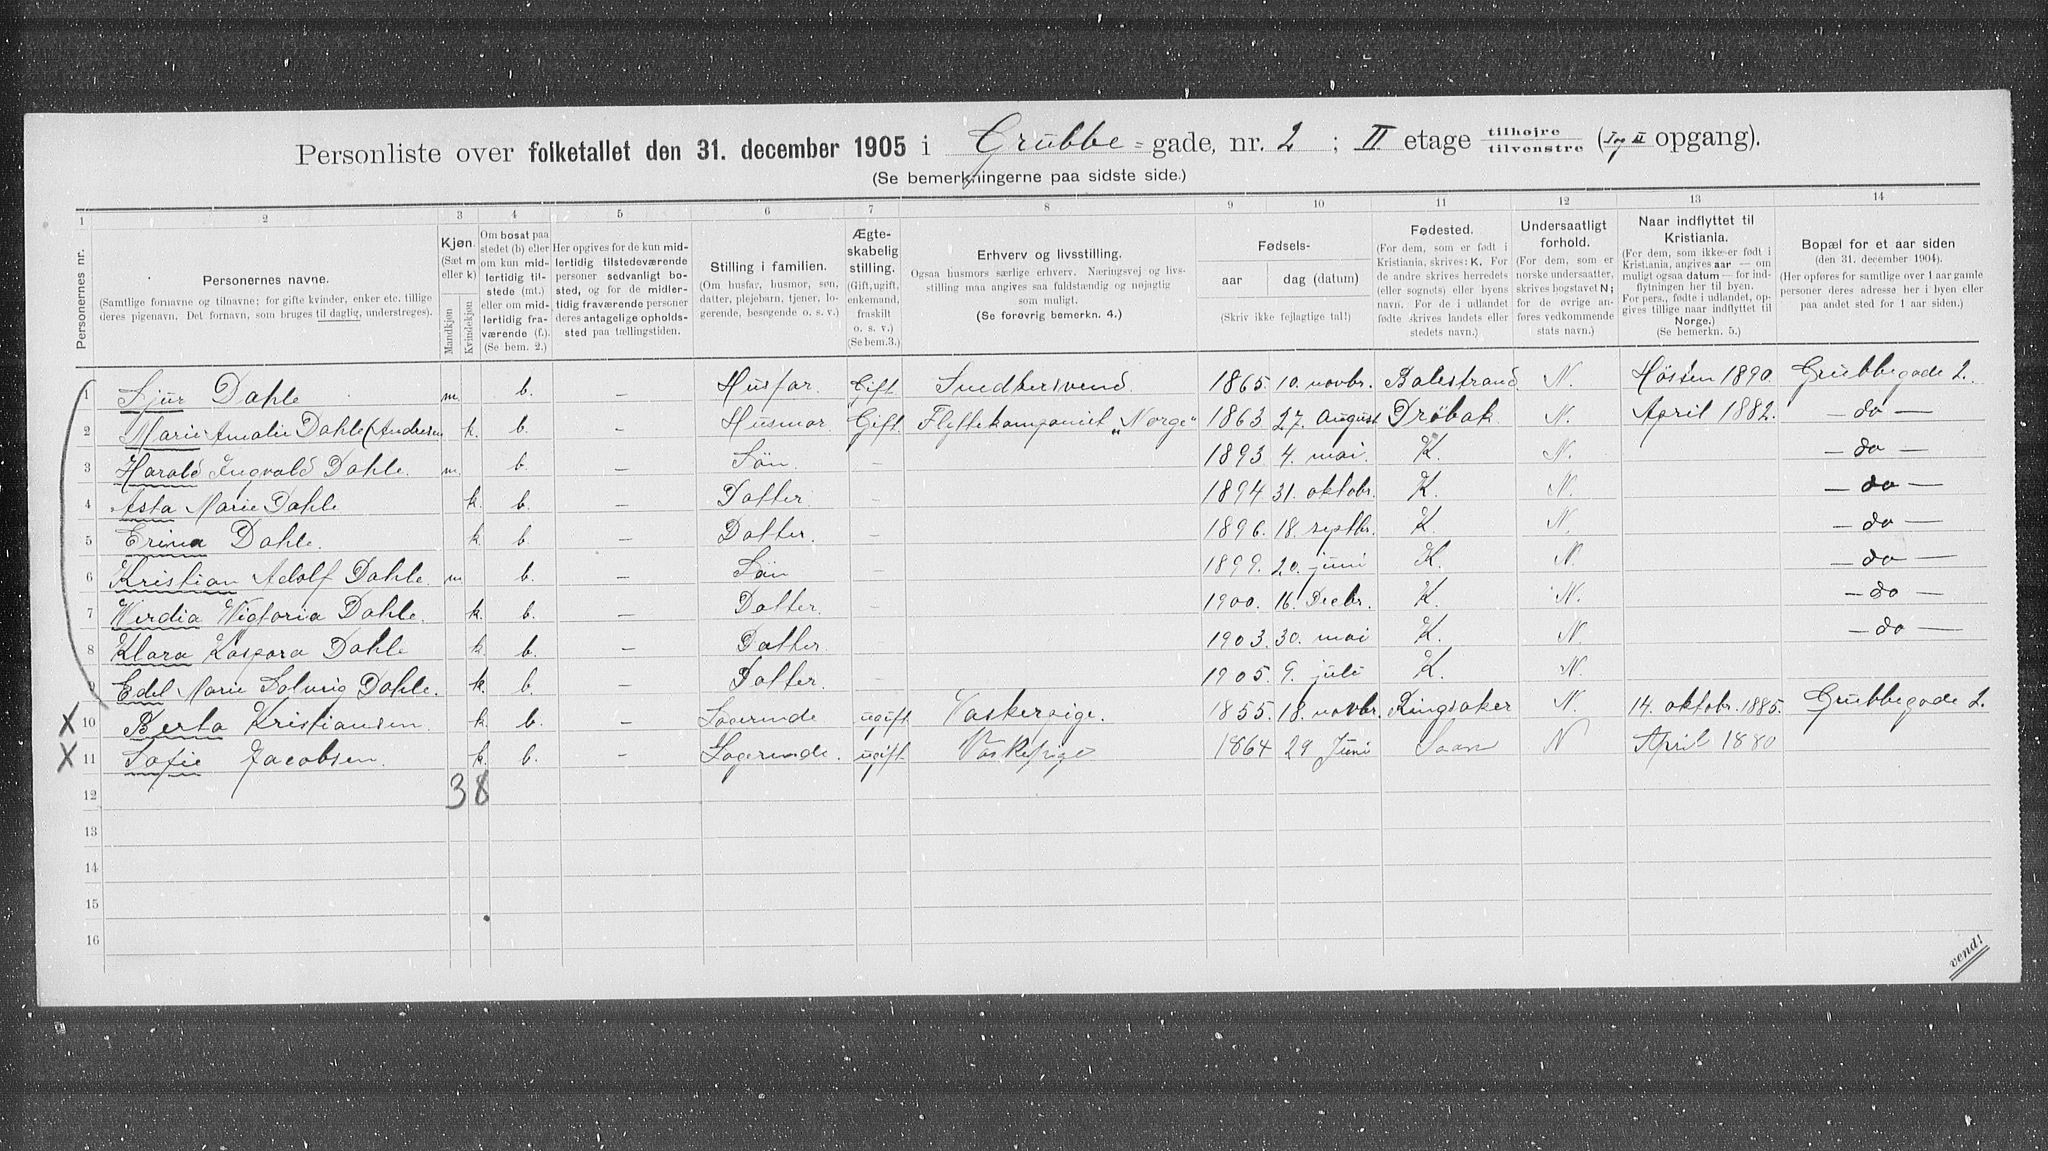 Personliste over folketallet den 31. december 1905 i Grubbe-gade, nr. 2; II etage tilhøjre tilvenstre (I og II opgang).
(Se bemerkningerne paa sidste side.)
1 2 3 4 5 6 7 8 9 10 11 12 13 14
Personernes nr.
Personernes navne.
(Samtlige fornavne og tilnavne; for gifte kvinder, enker etc. tillige deres pigenavn. Det fornavn, som bruges til daglig, understreges).
Kjøn. (Sæt m eller k)
Mandkjøn
Kvindekjøn
Om bosat paa stedet (b) eller om kun midlertidig tilstede (mt.) eller om midlertidig fraværende (f.). (Se bem. 2.)
Her opgives for de kun midlertidig tilstedeværende personer sedvanlig bosted, og for de midlertidig fraværende personer deres antagelige opholdssted paa tællingstiden.
Stilling i familien.
(Om husfar, husmor, søn, datter, plejebarn, tjener, logerende, besøgende o. s. v.)
Ægteskabelig stilling.
(Gift, ugift, enkemand, fraskilt o. s. v.) (Se bem.3.)
Erhverv og livsstilling.
Ogsaa husmors særlige erhverv. Næringsvej og livsstilling maa angives saa fuldstændig og nøjagtig som muligt.
(Se forøvrig bemerkn. 4.)
Fødsels-
aar dag (datum)
(Skriv ikke fejlagtige tal!)
Fødested.
(For dem, som er født i Kristiania, skrives: K. For de andre skrives herredets (eller sognets) eller byens navn. For de i udlandet fødte skrives landets eller stedets navn.)
Undersaatligt forhold.
(For dem, som er norske undersaatter, skrives bogstavet N; for de øvrige anføres vedkommende stats navn.)
Naar indflyttet til Kristiania.
(For dem, som ikke er født i Kristiania, angives aar — om muligt ogsaa datum — for indflytningen her til byen. For pers., fødte i udlandet, opgives tillige naar indflyttet til Norge.)
(Se bemerkn. 5.)
Bopæl for et aar siden
(den 31. december 1904).
(Her opføres for samtlige over 1 aar gamle personer deres adresse her i byen eller paa andet sted for 1 aar siden.)
1 Sjur Dahle m. b. — Husfar. Gift Snedkersvend. 1865. 10. novbr. Balestrand N. Høsten 1890. Grubbegade 2.
2 Marie Amalie Dahle (Andresen k. b. — Husmor. Gift. Flyttekompaniet "Norge" 1863 27. August Drøbak N. April 1882. — do —
3 Harald Ingvald Dahle. m. b. — Søn. — 1893. 4. mai. K. N. — do —
4 Asta Marie Dahle k. b. — Datter. — 1894 31. oktobr. K. N. — do —
5 Erina Dahle. k. b. — Datter. — 1896. 18. septbr. K. N. — do —
6 Kristian Adolf Dahle. m b. — Søn — 1899. 20. juni K. N. — do —
7 Wirdia Wigtoria Dahle. k. b. — Datter. — 1900. 16. Decbr. K. N. — do —
8 Klara Kaspara Dahle k. b. — Datter. 1903. 30. mai K. N. — do —
9 Edel Marie Solveig Dahle. k. b. — Datter. 1905. 9. juli K. N.
X 10 Berta Kristiansen. k. b. — Logerende ugift Vaskepige. 1855. 18. novbr. Ringsaker N. 14. oktobr. 1885. Grubbegade 2.
X 11 Sofie Jacobsen. k. b. — Logerende. ugift Vaskepige 1864 29 Juni Saan N April 1880
12 3 8
13
14
15
16
vend!